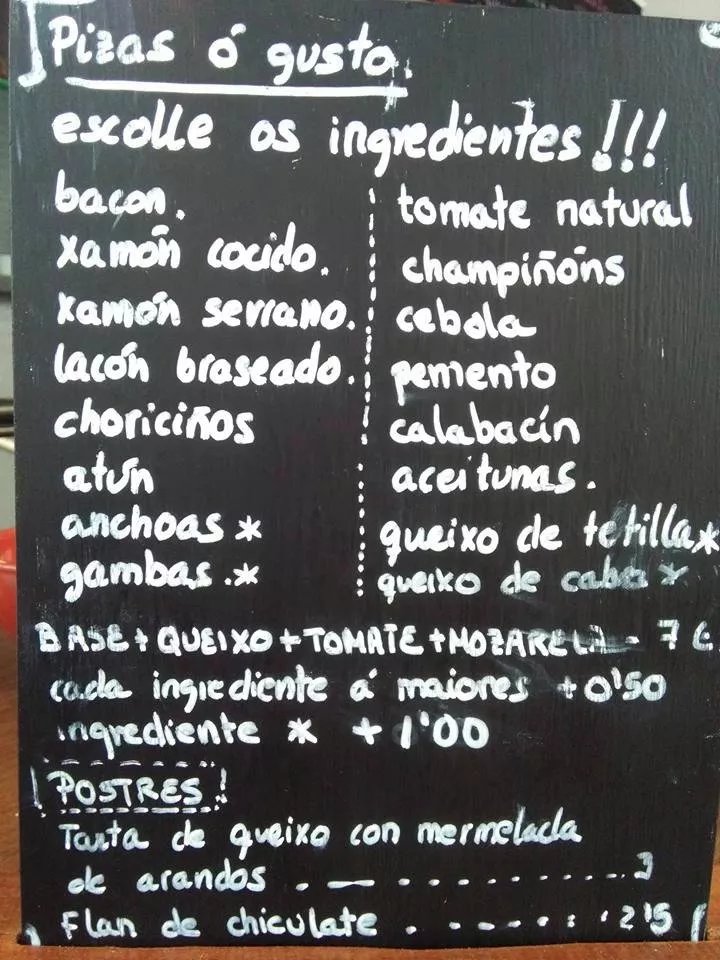 Pizas ó gusto.
escolle os ingredientes!!!
bacon.
xamón cocido.
xamón serrano.
lacón braseado.
choriciños
atún
anchoas *
gambas.*
tomate natural
champiñóns
cebola
pemento
calabacín
aceitunas.
queixo de tetilla*
queixo de cabra *
BASE + QUEIXO + TOMATE + MOZARELA - 7 €
cada ingrediente á maiores +0'50
ingrediente * +1'00
¡POSTRES!
Tarta de queixo con mermelada
de arandos . — . . . . . . . . . . 3
Flan de chiculate . - . . . : . . 2'5